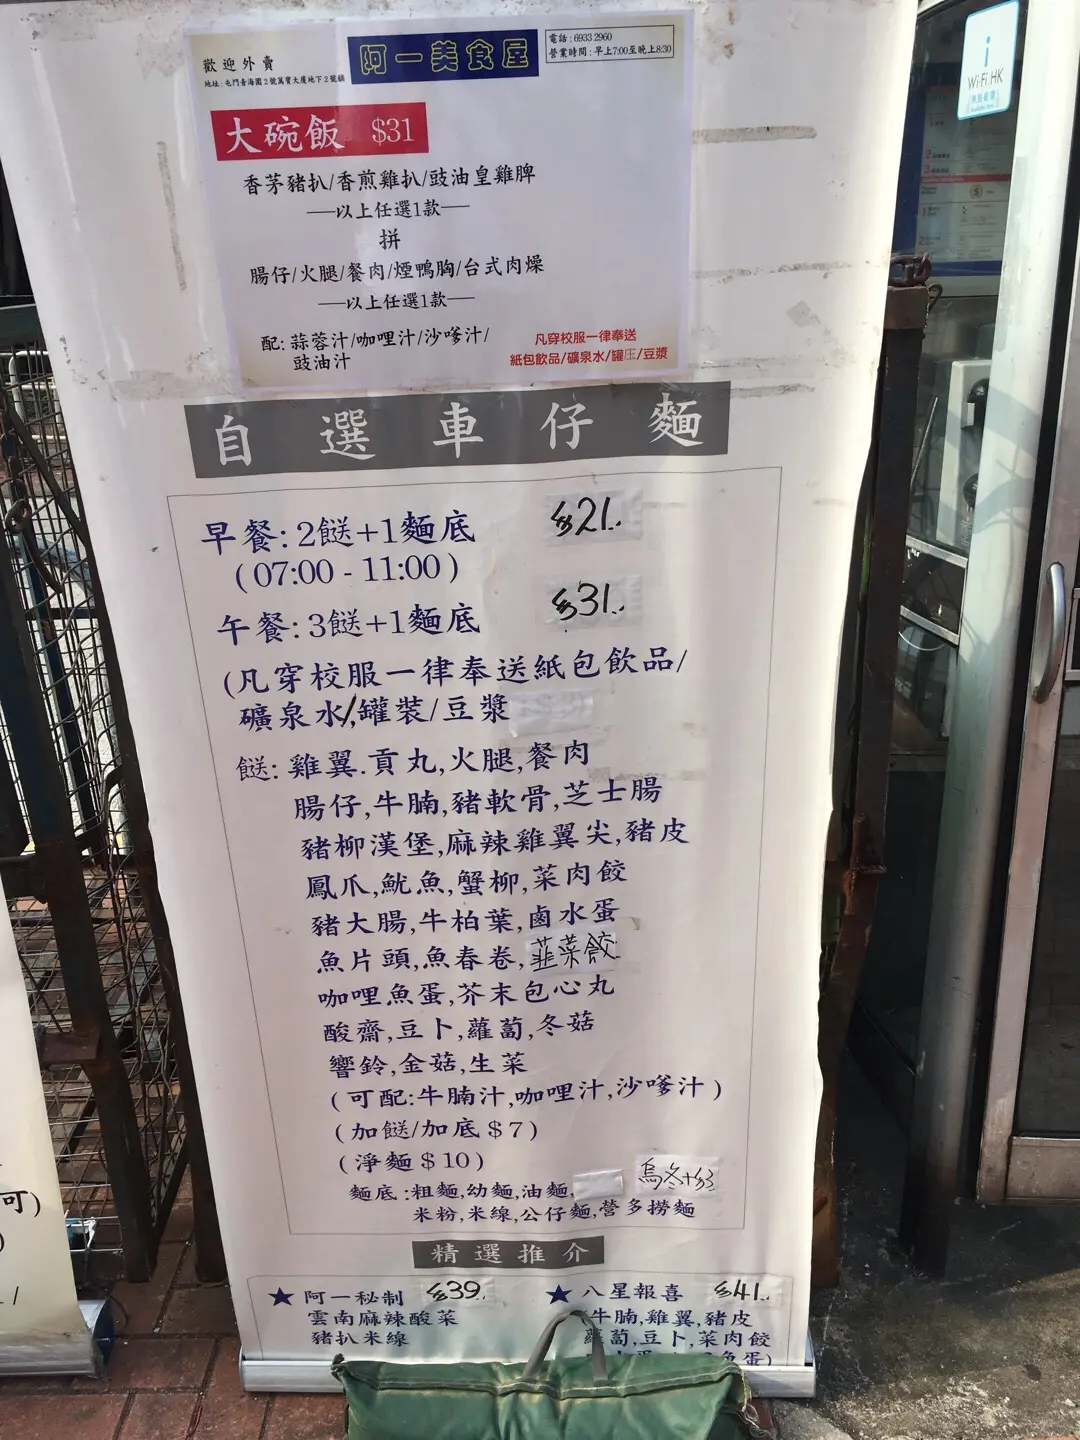 歡迎外賣
地址：屯門青海圍2號萬寶大廈地下2號舖
阿一美食屋
電話：6933 2960
營業時間：早上7:00至晚上8:30
大碗飯 $31
香茅豬扒/香煎雞扒/豉油皇雞脾
──以上任選1款──
拼
腸仔/火腿/餐肉/煙鴨胸/台式肉燥
──以上任選1款──
配: 蒜蓉汁/咖哩汁/沙嗲汁/
豉油汁
凡穿校服一律奉送
紙包飲品/礦泉水/罐庄/豆漿
自選車仔麵
早餐: 2餸+1麵底 $21.
(07:00 - 11:00)
午餐: 3餸+1麵底 $31.
(凡穿校服一律奉送紙包飲品/
礦泉水/罐裝/豆漿
餸: 雞翼.貢丸,火腿,餐肉
腸仔,牛腩,豬軟骨,芝士腸
豬柳漢堡,麻辣雞翼尖,豬皮
鳳爪,魷魚,蟹柳,菜肉餃
豬大腸,牛柏葉,鹵水蛋
魚片頭,魚春卷,韮菜餃
咖哩魚蛋,芥末包心丸
酸齋,豆卜,蘿蔔,冬菇
響鈴,金菇,生菜
(可配:牛腩汁,咖哩汁,沙嗲汁)
(加餸/加底$7)
(淨麵$10)
麵底:粗麵,幼麵,油麵, 烏冬+$3
米粉,米線,公仔麵,營多撈麵
精選推介
★ 阿一秘制 $39.
雲南麻辣酸菜
豬扒米線
★ 八星報喜 $41.
牛腩,雞翼,豬皮
蘿蔔,豆卜,菜肉餃
魚蛋)
i
Wi-Fi.HK